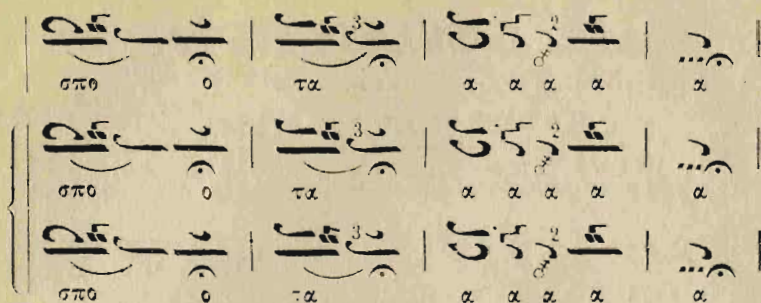 σπο ο τα α α α α α
σπο ο τα α α α α α
σπο ο τα α α α α α